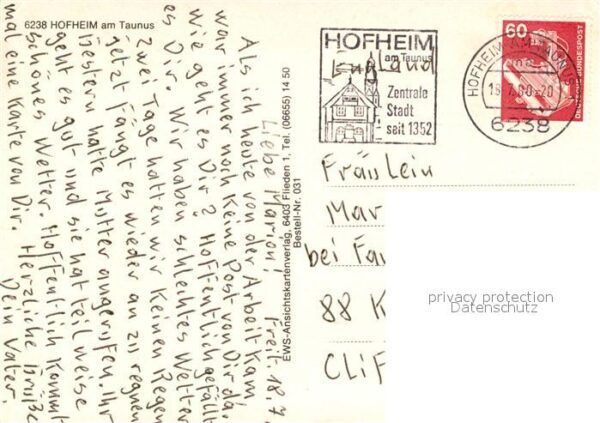 6238 HOFHEIM am Taunus
Liebe Marion! Freit. 18.7.
Als ich heute von der Arbeit kam,
war immer noch keine Post von Dir da.
Wie geht es Dir? Hoffentlich gefällt
es Dir. Wir haben schlechtes Wetter
zwei Tage hatten wir keinen Regen
jetzt fängt es wieder an zu regnen
Gestern hatte Mutter angerufen. Ihr
geht es gut und sie hat teilweise
schönes Wetter. Hoffentlich kommt
mal eine Karte von Dir. Herzliche Grüße
Dein Vater.
EWS-Ansichtskartenverlag, 6403 Flieden 1, Tel. (06655) 14 50
Bestell-Nr. 031
HOFHEIM
am Taunus
Zentrale
Stadt
seit 1352
England
HOFHEIM AM TAUNUS
6238
60
DEUTSCHE BUNDESPOST
Fräulein
Mar
bei Fa
88 K
CLIF
privacy protection
Datenschutz